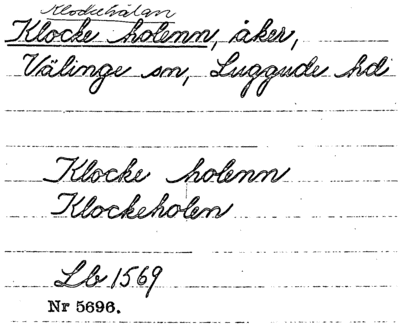 Klockehålan
Klocke holenn, åker,
Välinge sn, Luggude hd
Klocke holenn
Klockeholen
Lb 1569
Nr 5696.